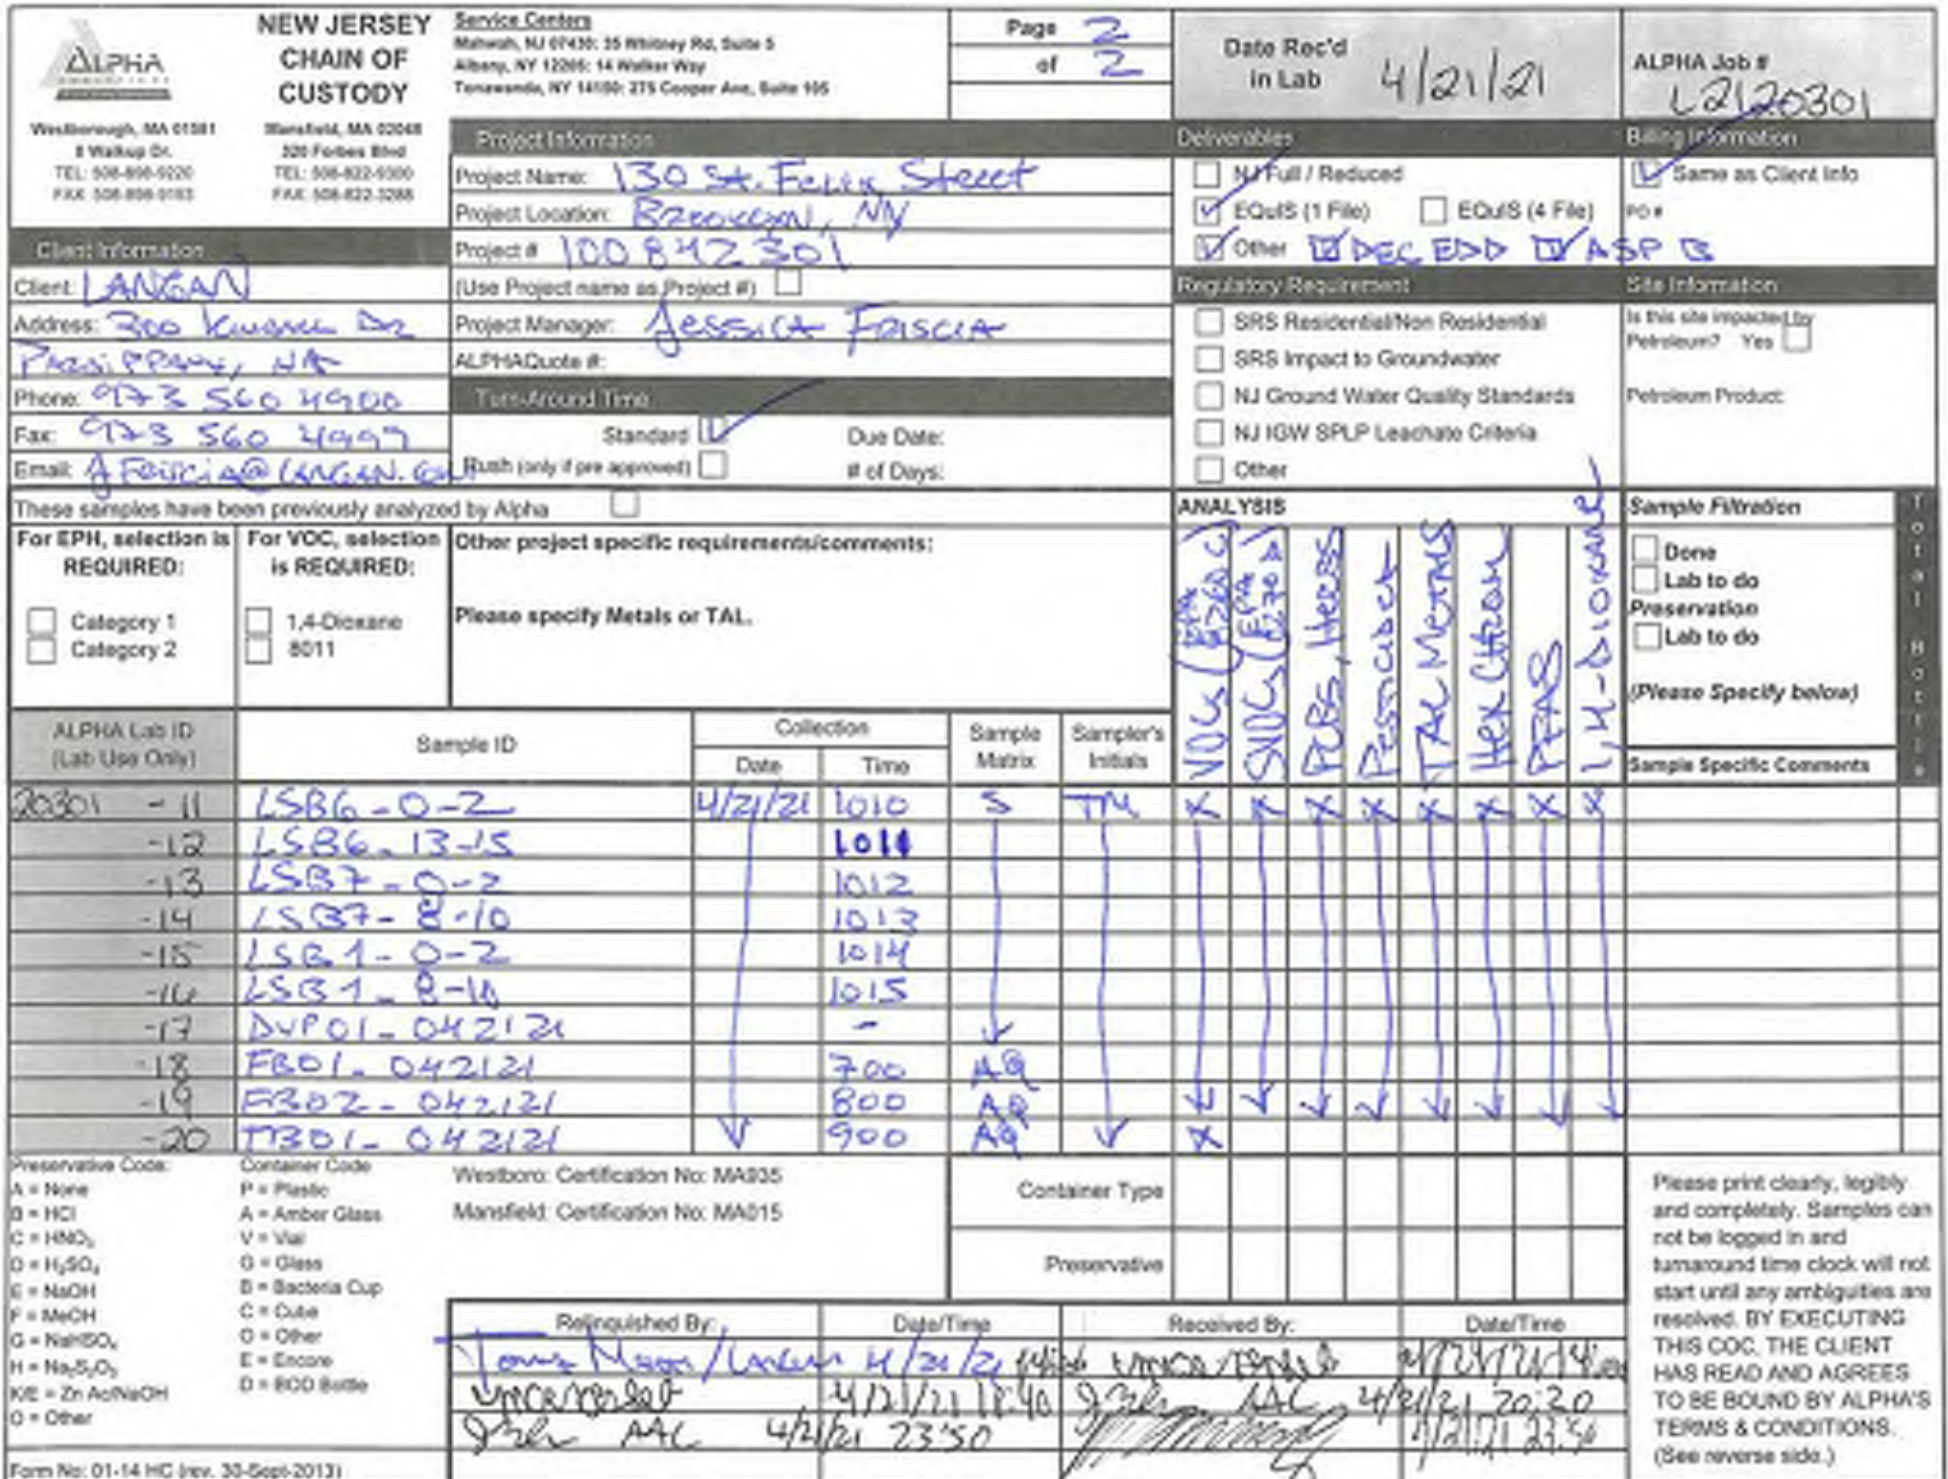 ALPHA
NEW JERSEY
CHAIN OF
CUSTODY
Westborough, MA 01581
8 Walkup Dr.
TEL: 508-898-9220
FAX: 508-898-9193
Mansfield, MA 02048
320 Forbes Blvd
TEL: 508-822-9300
FAX: 508-822-3288
Service Centers
Mahwah, NJ 07430: 35 Whitney Rd, Suite 5
Albany, NY 12205: 14 Walker Way
Tonawanda, NY 14150: 275 Cooper Ave, Suite 105
Page 2
of 2
Date Rec'd
in Lab 4/21/21
ALPHA Job #
L2120301
Client Information
Client: LANGAN
Address: 300 Kimball Dr
Parsippany,
Phone: 973 560 4900
Fax: 973 560 4999
Email:
Project Information
Project Name: 130 St. Felix Street
Project Location: Brooklyn, NY
Project # 100842301
(Use Project name as Project #)
Project Manager: Jessica Friscia
ALPHAQuote #:
Turn-Around Time
Standard
Due Date:
Rush (only if pre approved)
# of Days:
Deliverables
NJ Full / Reduced
EQuIS (1 File) EQuIS (4 File)
Other DEC EDD ASP B
Billing Information
Same as Client Info
PO #
Regulatory Requirement
SRS Residential/Non Residential
SRS Impact to Groundwater
NJ Ground Water Quality Standards
NJ IGW SPLP Leachate Criteria
Other
Site Information
Is this site impacted by
Petroleum? Yes
Petroleum Product:
These samples have been previously analyzed by Alpha
For EPH, selection is
REQUIRED:
Category 1
Category 2
For VOC, selection
is REQUIRED:
1,4-Dioxane
8011
Other project specific requirements/comments:
Please specify Metals or TAL.
ANALYSIS
VOCs (EPA 8260C)
SVOCs (EPA 8270D)
PCBs, Herbs
Pesticides
TAL Metals
Hex Chrom
PFAS
1,4-Dioxane
Sample Filtration
Done
Lab to do
Preservation
Lab to do
(Please Specify below)
Total Bottles
ALPHA Lab ID
(Lab Use Only)
Sample ID
Collection
Date Time
Sample
Matrix
Sampler's
Initials
Sample Specific Comments
20301 -11 LSB6_0-2 4/21/21 1010 S TM X X X X X X X X
-12 LSB6_13-15 1011
-13 LSB7_0-2 1012
-14 LSB7_8-10 1013
-15 LSB1_0-2 1014
-16 LSB1_8-10 1015
-17 DUP01_042121 -
-18 FB01_042121 700 AQ
-19 FB02_042121 800 AQ
-20 TB01_042121 900 AQ X
Preservative Code:
A = None
B = HCl
C = HNO₃
D = H₂SO₄
E = NaOH
F = MeOH
G = NaHSO₄
H = Na₂S₂O₃
K/E = Zn Ac/NaOH
O = Other
Container Code
P = Plastic
A = Amber Glass
V = Vial
G = Glass
B = Bacteria Cup
C = Cube
O = Other
E = Encore
D = BOD Bottle
Westboro: Certification No: MA935
Mansfield: Certification No: MA015
Container Type
Preservative
Relinquished By: Date/Time Received By: Date/Time
/Langan 4/21/21
4/21/21 18:40 AAC 4/21/21 20:20
AAC 4/21/21 23:50
Please print clearly, legibly
and completely. Samples can
not be logged in and
turnaround time clock will not
start until any ambiguities are
resolved. BY EXECUTING
THIS COC, THE CLIENT
HAS READ AND AGREES
TO BE BOUND BY ALPHA'S
TERMS & CONDITIONS.
(See reverse side.)
Form No: 01-14 HC (rev. 30-Sept-2013)